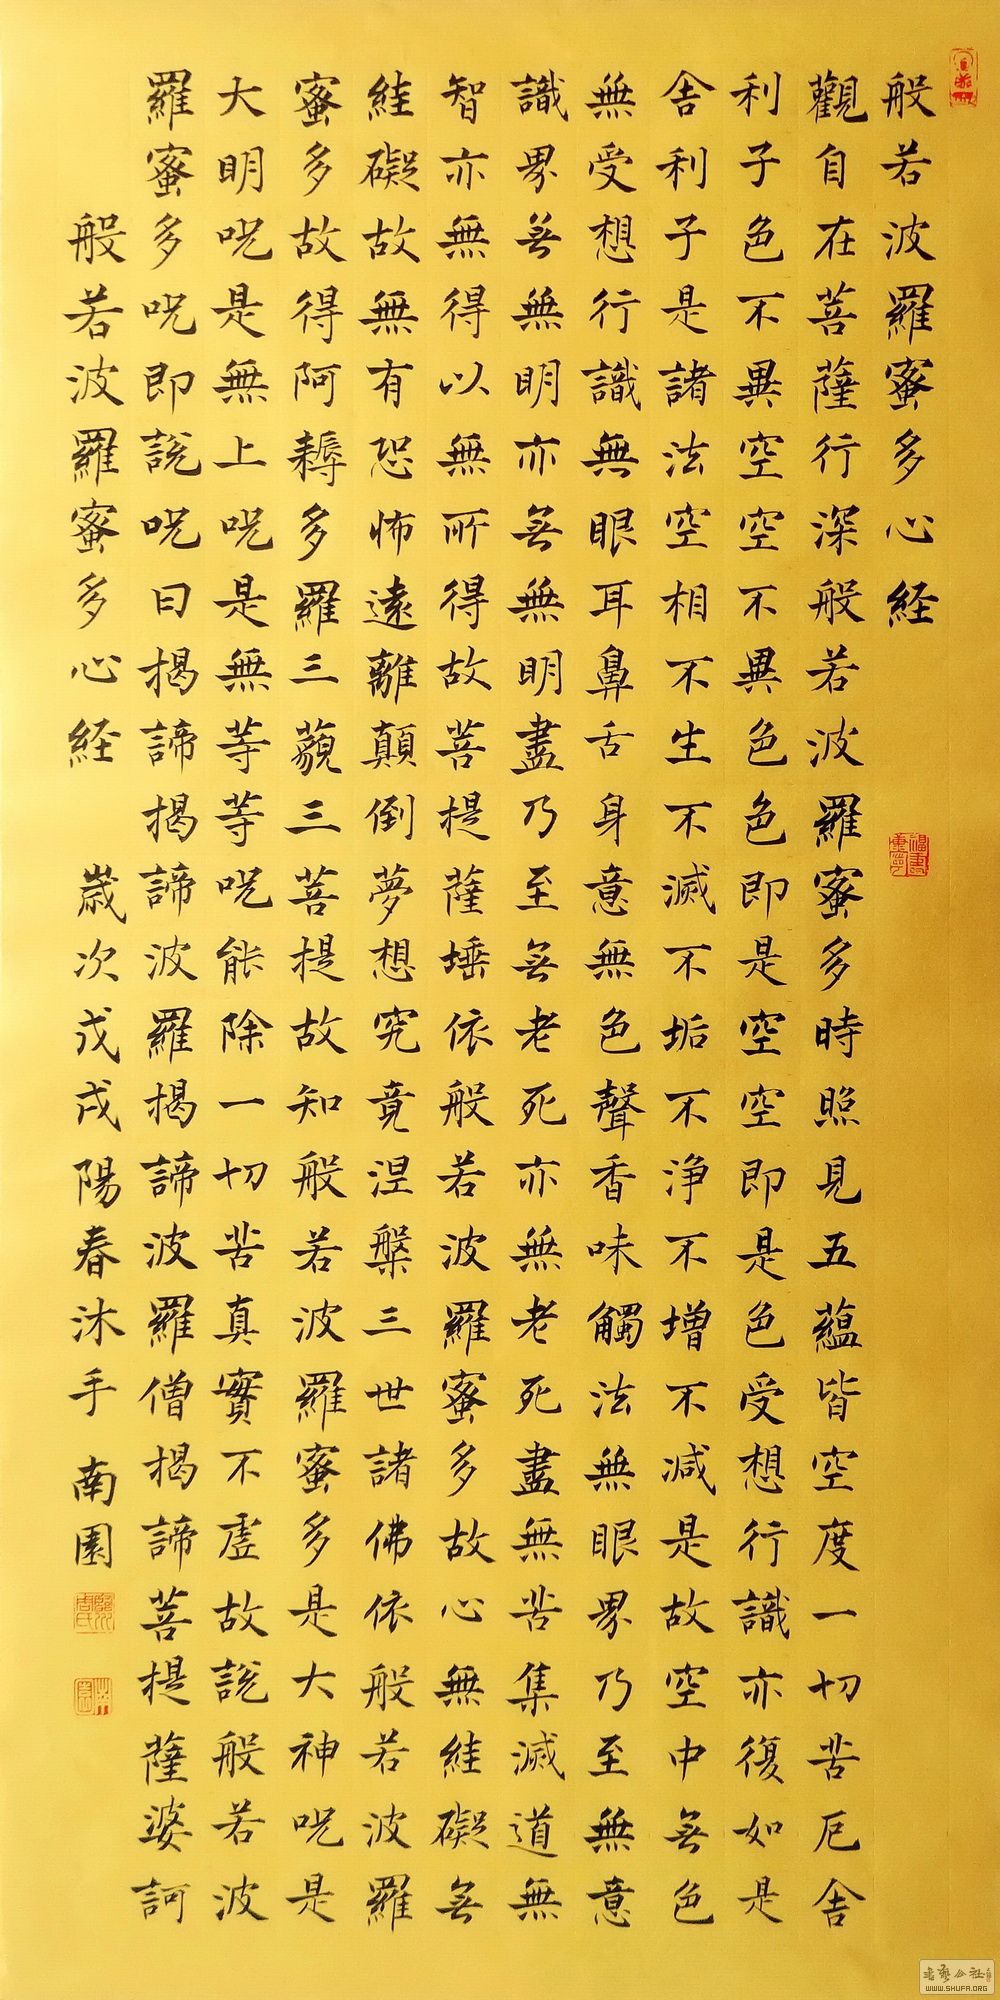 般若波羅蜜多心経
觀自在菩薩行深般若波羅蜜多時照見五蘊皆空度一切苦厄舍
利子色不異空空不異色色即是空空即是色受想行識亦復如是
舍利子是諸法空相不生不滅不垢不浄不增不減是故空中无色
無受想行識無眼耳鼻舌身意無色聲香味觸法無眼界乃至無意
識界无無明亦无無明盡乃至无老死亦無老死盡無苦集滅道無
智亦無得以無所得故菩提薩埵依般若波羅蜜多故心無絓礙无
絓礙故無有恐怖遠離顛倒夢想究竟涅槃三世諸佛依般若波羅
蜜多故得阿耨多羅三藐三菩提故知般若波羅蜜多是大神呪是
大明呪是無上呪是無等等呪能除一切苦真實不虛故說般若波
羅蜜多呪即說呪曰揭諦揭諦波羅揭諦波羅僧揭諦菩提薩婆訶
般若波羅蜜多心経 歲次戊戌陽春沐手 南園
WWW.SHUFA.ORG